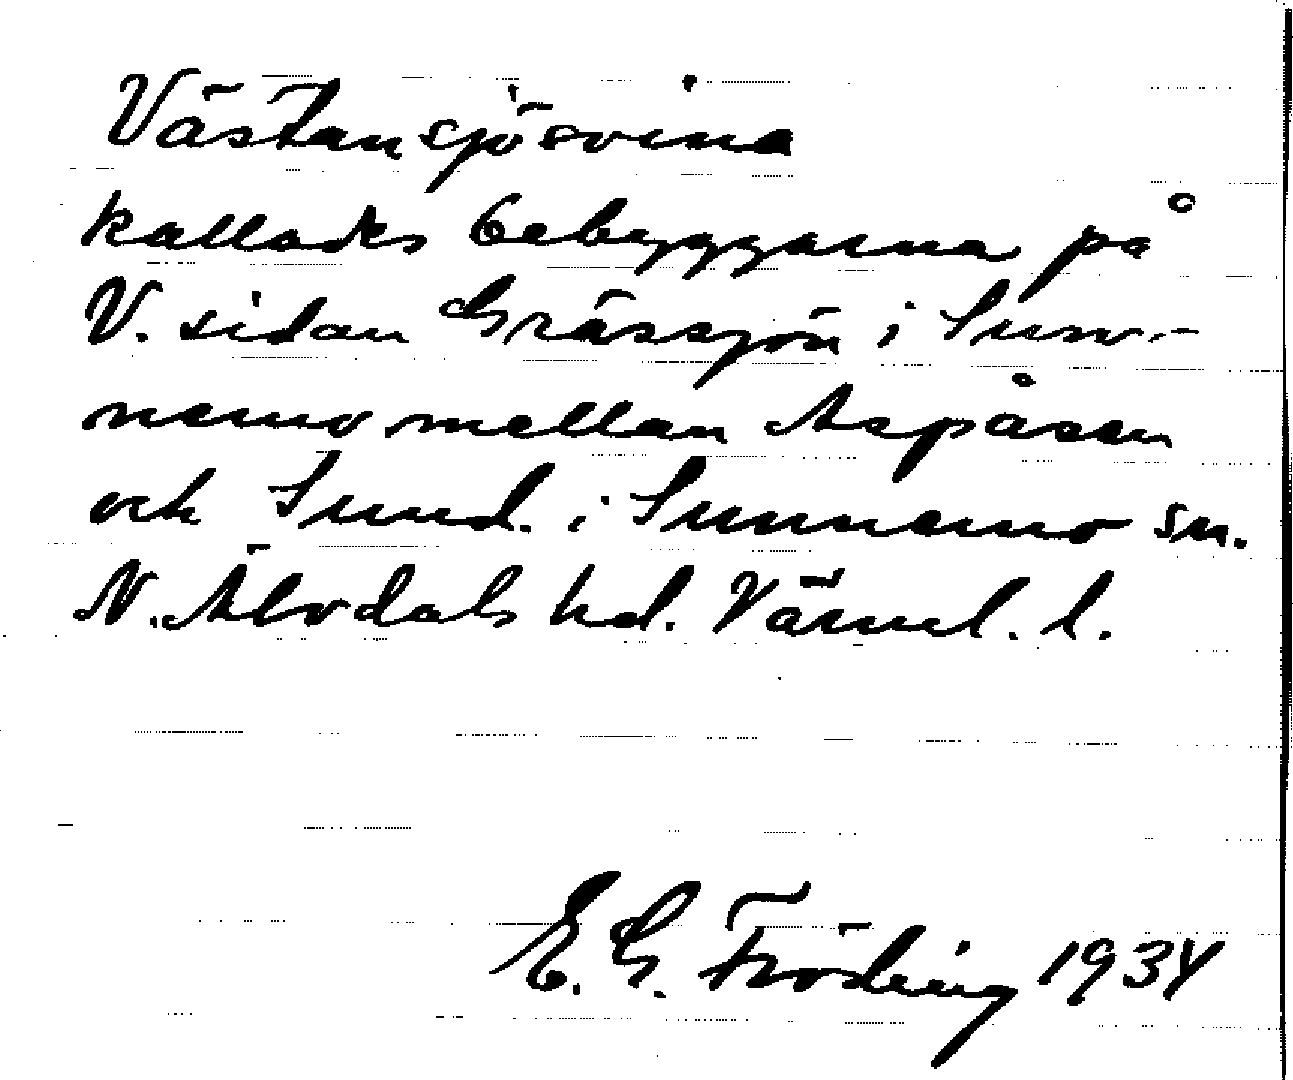 Västansjösvina
kallades bebyggarna på
V. sidan Grässjön i Sun-
nemo mellan Aspåsen
och Sund i Sunnemo sn.
N. Älvdals hd. Värml. l.
E. G. Fröding 1934